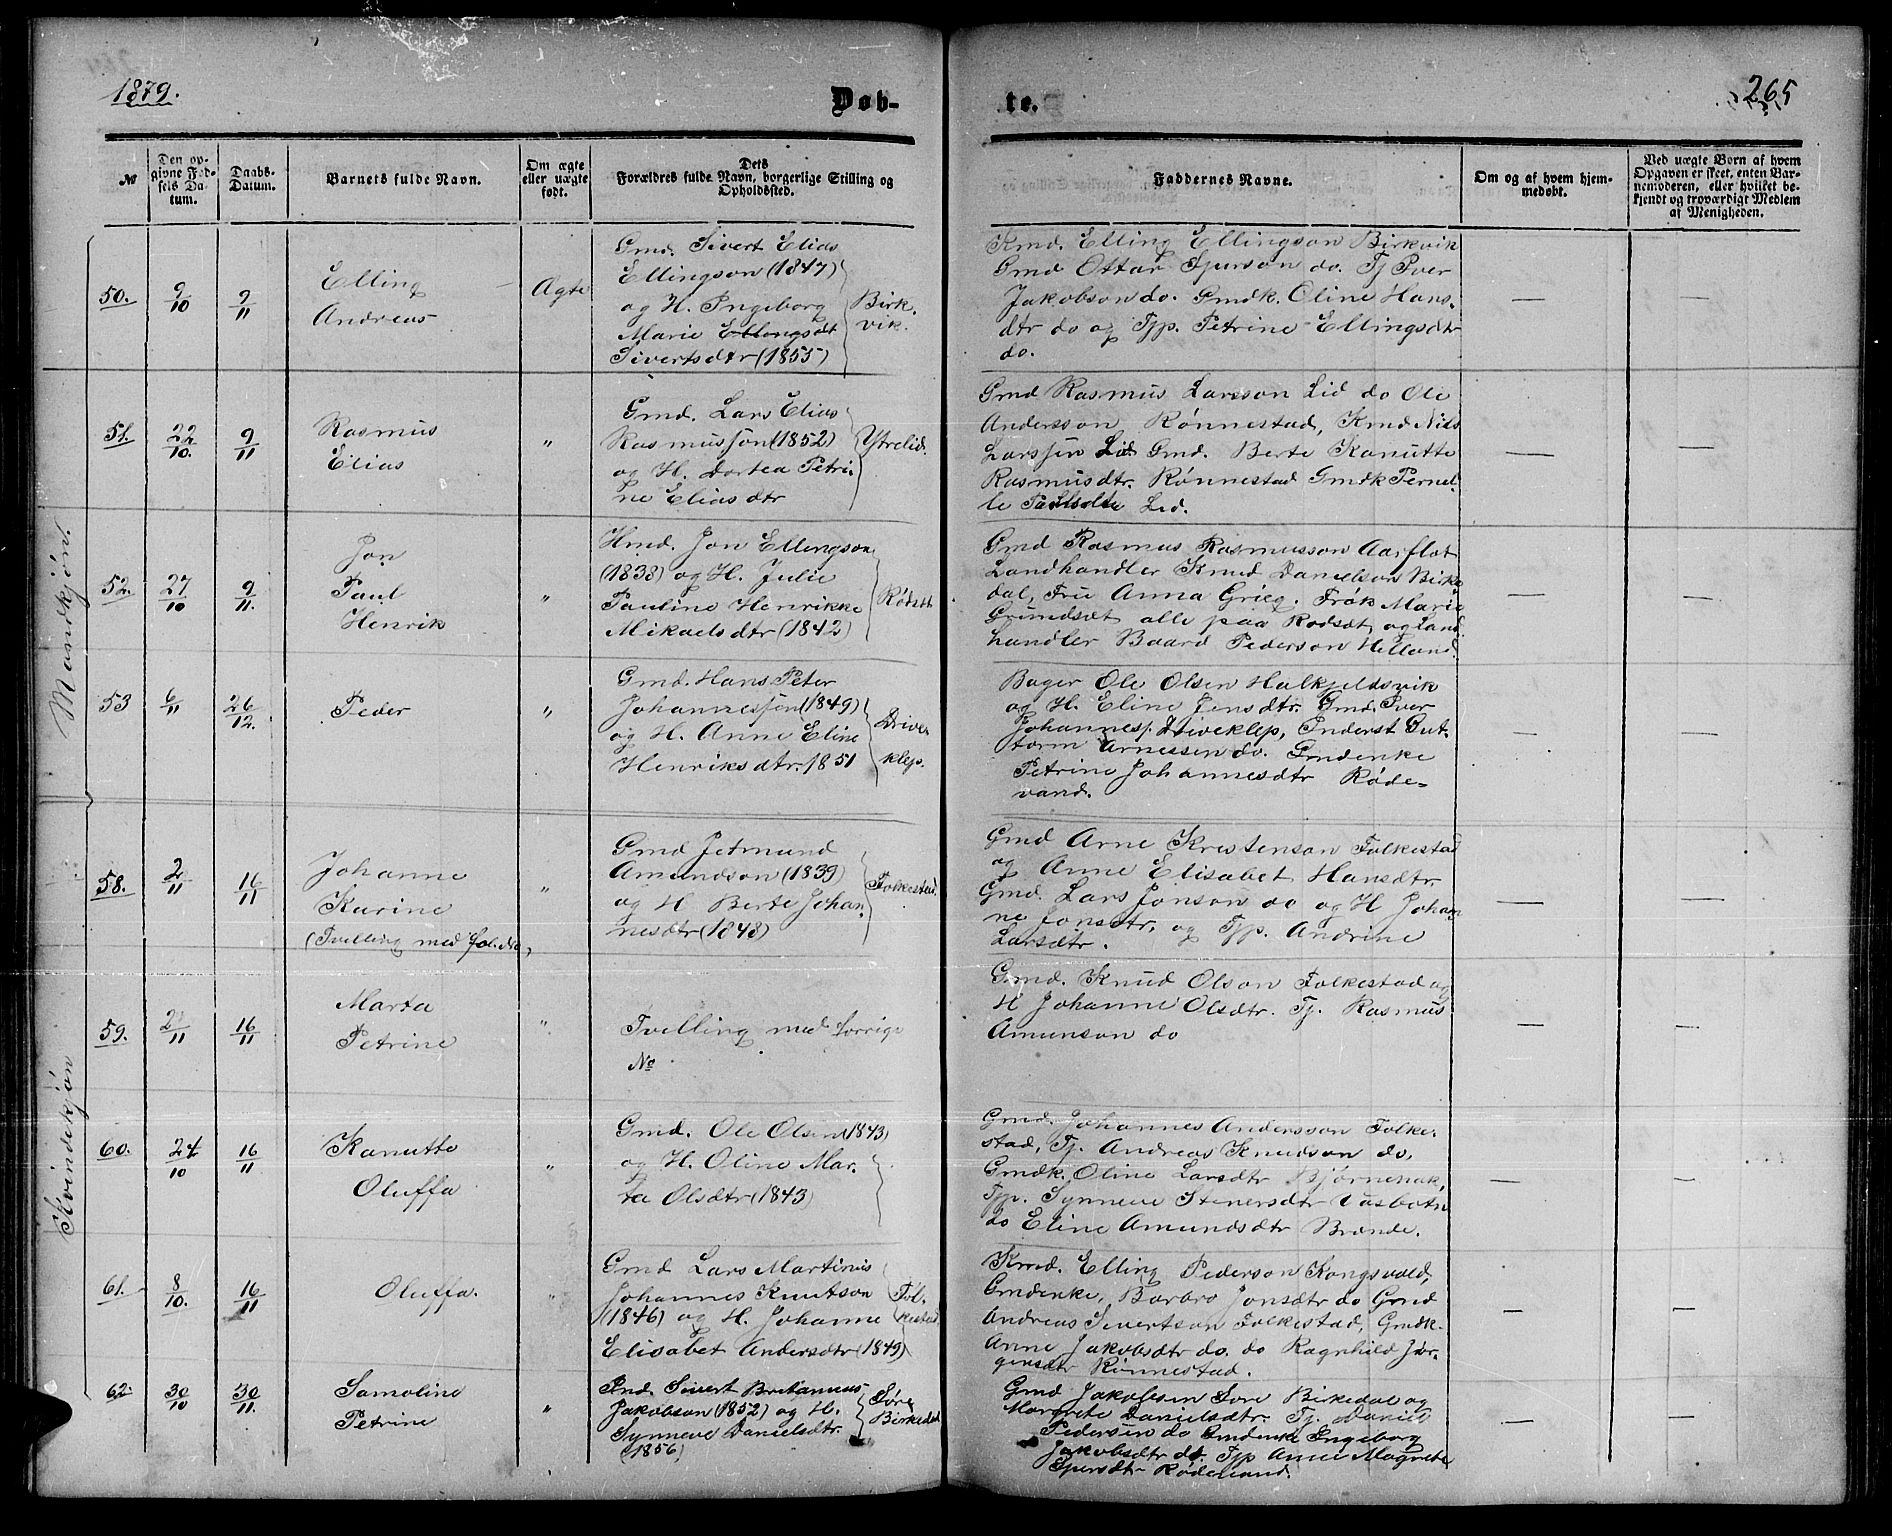 1879.
Døb-
te.
265
№
Den op-
givne Fød-
sels Da-
tum.
Daabs-
Datum.
Barnets fulde Navn.
Om ægte
eller uægte
født.
Dets
Forældres fulde Navn, borgerlige Stilling og
Opholdsted.
Faddernes Navne.
Om og af hvem hjem-
medøbt.
Ved uægte Børn af hvem
Opgaven er skeet, enten Bar-
nemoderen, eller hvilket be-
kjendt og troværdigt Medlem
af Menigheden.
Mandkjøn.
50.
9/10
9/11
Elling
Andreas
Ægte
Gmd. Sivert Elias
Ellingson (1847)
og H. Ingeborg
Marie Ellingsdt
Sivertsdtr (1855)
Birk-
vik.
Kmd. Elling Ellingson Birkvik
Gmd Ottar Iverson do. Tj Iver
Jakobson do. Gmdk. Oline Hans-
dtr do og Tjp. Petrine Ellingsdtr
do.
—
—
51.
22/10.
9/11
Rasmus
Elias
"
Gmd. Lars Elias
Rasmussøn (1852)
og H. Dortea Petri-
ne Eliasdtr
Ytrelid.
Gmd Rasmus Larsson Lid do Ole
Andersson Rønnestad, Kmd Nils
Larssen Lid Gmd. Berte Kanutte
Rasmusdtr. Rønnestad Gmdk Pernel-
le Lid.
—
—
52.
27/10
9/11.
Jon
Paul
Henrik
"
Hmd. Jon Ellingson
(1838) og H. Julie
Pauline Henrikke
Mikaelsdtr (1842)
Rødset
Gmd Rasmus Rasmusson Aarflot
Landhandler Knud Danielson Birke-
dal, Frue Anna Grieg. Frøk Marie
Grundset alle paa Rødset, og Land-
handler Baard Pederson Helland.
—
—
53
6/11
26/12.
Peder
"
Gmd. Hans Peter
Johannessøn (1849)
og H. Anne Eline
Henriksdtr. 1851
Drive-
klep.
Bager Ole Olsen Halkjeldsvik
og H. Eline Jensdtr. Gmd. Iver
Johanness. Driveklep, Inderst Gut-
torm Arnessen do. Gmdenke
Petrine Johannesdtr Røde-
vand.
—
—
Kvindekjøn
58.
2/11
16/11
Johanne
Karine
(Tvilling med føl. No
"
Gmd Jetmund
Amundson (1839)
og H Berte Johan-
nesdtr (1848)
Folkestad.
Gmd Arne Kristenson Folkestad
og Anne Elisabet Hansdtr.
Gmd. Lars Jonson do og H Johan
ne Jonsdtr. og Tjp. Andrine
Larsdtr.
—
—
59.
2/11
16/11
Marta
Petrine
"
Tvilling med forrige
No
Gmd. Knud Olson Folkestad og
H Johanne Olsdtr. Tj. Rasmus
Amunson do
—
—
60.
24/10
16/11
Kanutte
Oluffa
"
Gmd. Ole Olsen (1843)
og H. Oline Mar-
ta Olsdtr (1843)
Gmd. Johannes Andersson Folke-
stad, Tj. Andreas Knudson do.
Gmdk. Oline Larsdtr Bjørnenak,
Tjp. Synneve Stenersdtr Vasbotn
do Eline Amundsdtr Brande.
—
—
61.
8/10.
16/11
Oluffa.
"
Gmd Lars Martinus
Johannes Knutson
(1846) og H. Johanne
Elisabet Andersdtr (1849)
Fol-
kestad
Kmd. Elling Pederson Kongsvold,
Gmdenke, Barbro Jonsdtr do Gmd
Andreas Sivertson Folkestad, Gmdk.
Anne Jakobsdtr do. do Ragnhild Jør-
gensdtr Rønnestad.
—
—
62.
30/10
30/11.
Samoline
Petrine
"
Ind. Sivert Britanus
Jakobson (1852) og H.
Synneve Danielsdtr.
(1856)
Søre
Birkedal
Gmd Jakobsen Søre Birkedal og
Margrete Danielsdtr. Tj. Daniel
Pedersen do Gmdenke Ingeborg
Jakobsdtr do. Tjp Anne Magrete
Iversdtr Rødevand
—
—